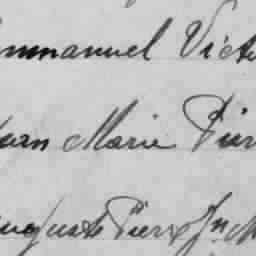 mmanuel Victo
Jean Marie Pier
Auguste Pierre Jn M